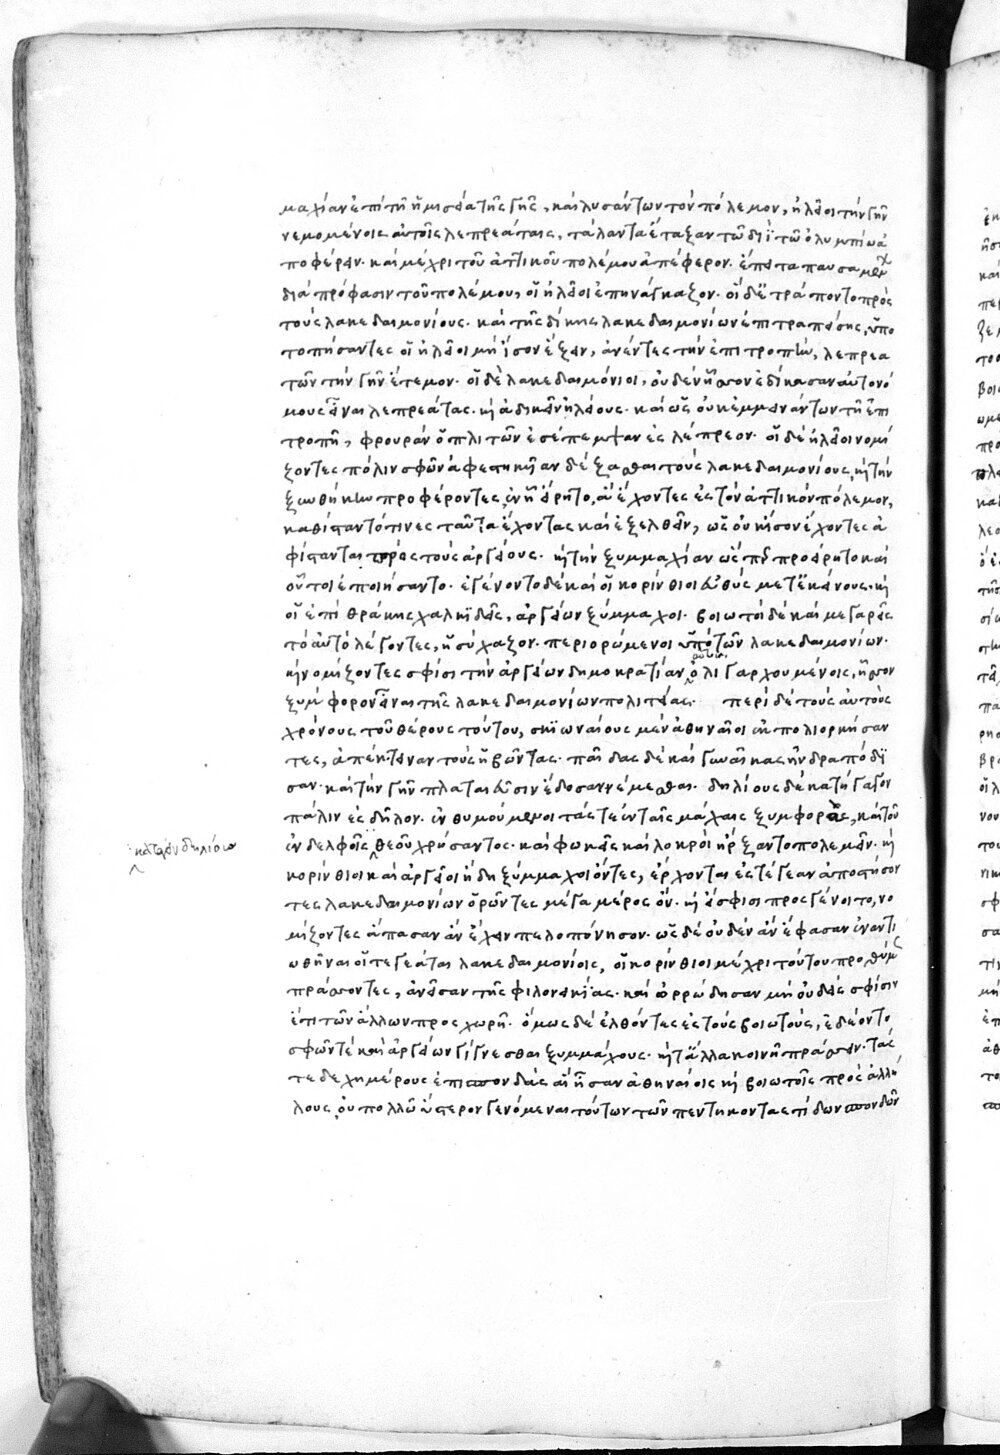 μαχίαν ἐπὶ τῆ ἡμισεία τῆς γῆς, καὶ λυσάντων τὸν πόλεμον, ἠλεῖοι τὴν γῆν
νεμομένοις αὐτοῖς λεπρεάταις, τάλαντα ἔταξαν τῶ διῒ τῶ ὀλυμπίω ἀ
ποφέρειν. καὶ μέχρι τοῦ ἀττικοῦ πολέμου ἀπέφερον. ἔπειτα παυσαμένων
διὰ πρόφασιν τοῦ πολέμου, οἱ ἠλεῖοι ἐπηνάγκαζον. οἱ δ' ἐτράποντο πρὸς
τοὺς λακεδαιμονίους. καὶ τῆς δίκης λακεδαιμονίων ἐπιτραπείσης, ὑπο
τοπήσαντες οἱ ἠλεῖοι μὴ ἴσον ἕξειν, ἀνέντες τὴν ἐπιτροπὴν, λεπρεα
τῶν τὴν γῆν ἔτεμον. οἱ δὲ λακεδαιμόνιοι, οὐδὲν ἧσσον ἐδίκασαν αὐτονό
μους εἶναι λεπρεάτας. καὶ ἀδικεῖν ἠλείους. καὶ ὡς οὐκ ἐμμεινάντων τῆ ἐπι
τροπῆ, φρουρὰν ὁπλιτῶν ἐσέπεμψαν ἐς λέπρεον. οἱ δὲ ἠλεῖοι νομί
ζοντες πόλιν σφῶν ἀφεστηκυῖαν δέξασθαι τοὺς λακεδαιμονίους, καὶ τὴν
ξυνθήκην προφέροντες ἐν ἧ εἴρητο, ἃ ἔχοντες ἐς τὸν ἀττικὸν πόλεμον,
καθίσταντό τινες ταῦτα ἔχοντας καὶ ἐξελθεῖν, ὡς οὐκ ἴσον ἔχοντες ἀ
φίστανται πρὸς τοὺς ἀργείους. καὶ τὴν ξυμμαχίαν ὥσπερ προείρητο καὶ
οὗτοι ἐποιήσαντο. ἐγένοντο δὲ καὶ οἱ κορίνθιοι εὐθὺς μετ' ἐκείνους. καὶ
οἱ ἐπὶ θράκης χαλκιδεῖς, ἀργείων ξύμμαχοι. βοιωτοὶ δὲ καὶ μεγαρεῖς
τὸ αὐτὸ λέγοντες, ἡσύχαζον. περιορώμενοι ὑπὸ τῶν λακεδαιμονίων.
καὶ νομίζοντες σφίσι τὴν ἀργείων δημοκρατίαν ὀλιγαρχουμένοις, ἧσσον
ξύμφορον εἶναι τῆς λακεδαιμονίων πολιτείας. περὶ δὲ τοὺς αὐτοὺς
χρόνους τοῦ θέρους τούτου, σκιωναίους μὲν ἀθηναῖοι ἐκπολιορκήσαν
τες, ἀπέκτειναν τοὺς ἡβῶντας. παῖδας δὲ καὶ γυναῖκας ἠνδραπόδι
σαν. καὶ τὴν γῆν πλαταιεῦσιν ἔδοσαν νέμεσθαι. δηλίους δὲ κατήγαγον
πάλιν ἐς δῆλον. ἐνθυμούμενοι τάς τε ἐν ταῖς μάχαις ξυμφορὰς, καὶ τοῦ
ἐν δελφοῖς θεοῦ χρήσαντος. καὶ φωκεῖς καὶ λοκροὶ ἤρξαντο πολεμεῖν. καὶ
κορίνθιοι καὶ ἀργεῖοι ἤδη ξύμμαχοι ὄντες, ἔρχονται ἐς τέγεαν ἀποστήσον
τες λακεδαιμονίων ὁρῶντες μέγα μέρος ὄν. καὶ εἰ σφίσι προσγένοιτο, νο
μίζοντες ἅπασαν ἂν ἔχειν πελοπόνησον. ὡς δὲ οὐδὲν ἂν ἔφασαν ἐναντι
ωθῆναι οἱ τεγεάται λακεδαιμονίοις, οἱ κορίνθιοι μέχρι τούτου προθύμως
πράσσοντες, ἀνεῖσαν τῆς φιλονεικίας. καὶ ὀρρώδησαν μὴ οὐδεὶς σφίσιν
ἔτι τῶν ἄλλων προσχωρῆ. ὅμως δὲ ἐλθόντες ἐς τοὺς βοιωτοὺς, ἐδέοντο
σφῶν τὲ καὶ ἀργείων γίγνεσθαι ξυμμάχους. καὶ τἄλλα κοινῆ πράσσειν. τάς
τε δεχημέρους ἐπισπονδάς αἳ ἦσαν ἀθηναίοις καὶ βοιωτοῖς πρὸς ἀλλή
λους, οὐ πολλῶ ὕστερον γενόμεναι τούτων τῶν πεντηκονταετίδων σπονδῶν